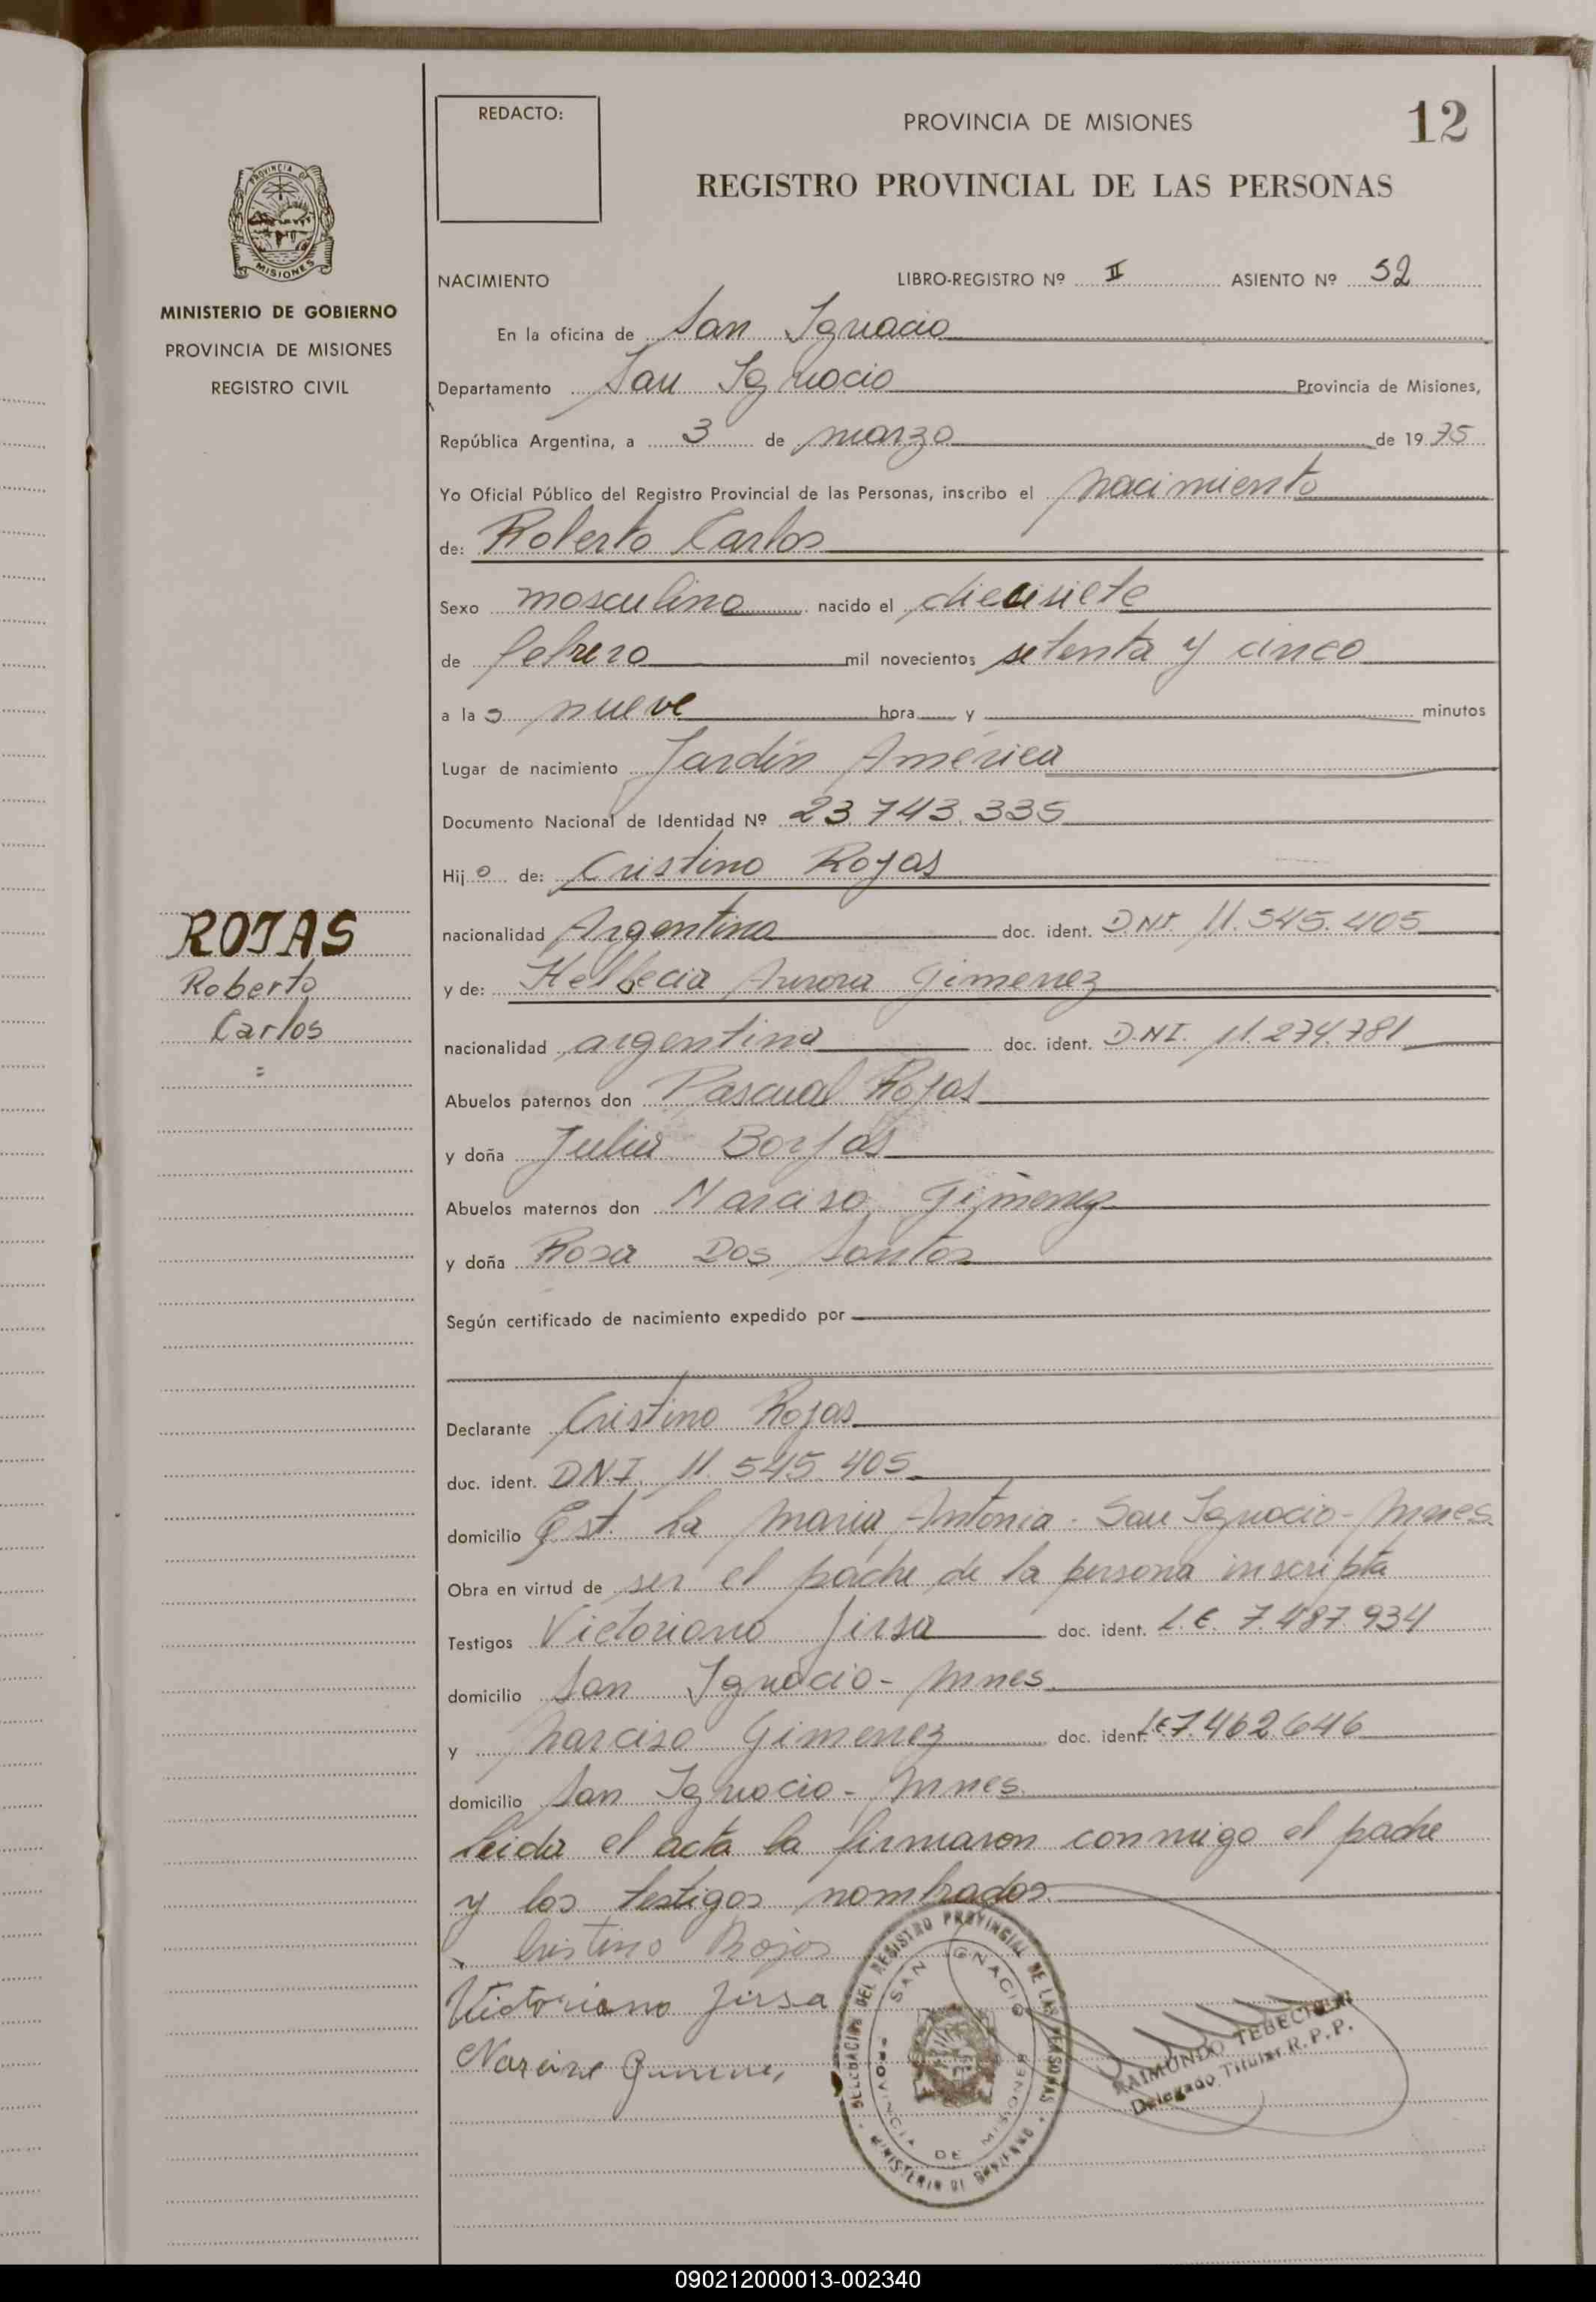 REDACTO:
PROVINCIA DE MISIONES
12
REGISTRO PROVINCIAL DE LAS PERSONAS
PROVINCIA DE
MISIONES
MINISTERIO DE GOBIERNO
PROVINCIA DE MISIONES
REGISTRO CIVIL
NACIMIENTO LIBRO-REGISTRO Nº II ASIENTO Nº 52
En la oficina de San Ignacio
Departamento San Ignacio Provincia de Misiones,
República Argentina, a 3 de marzo de 1975
Yo Oficial Público del Registro Provincial de las Personas, inscribo el nacimiento
de: Roberto Carlos
Sexo masculino nacido el diecisiete
de febrero mil novecientos setenta y cinco
a las nueve hora y minutos
Lugar de nacimiento Jardín América
Documento Nacional de Identidad Nº 23.743.335
Hijo de: Cristino Rojas
nacionalidad Argentina doc. ident. D.N.I. 11.545.405
y de: Helbecia Aurora Gimenez
nacionalidad argentina doc. ident. D.N.I. 11.274.781
Abuelos paternos don Pascual Rojas
y doña Julia Borjas
Abuelos maternos don Narciso Gimenez
y doña Rosa Dos Santos
Según certificado de nacimiento expedido por
Declarante Cristino Rojas
doc. ident. D.N.I. 11.545.405
domicilio Est. La Maria Antonia - San Ignacio - Mnes.
Obra en virtud de ser el padre de la persona inscripta
Testigos Victoriano Jirsa doc. ident. L.E. 7.487.934
domicilio San Ignacio - Mnes.
y Narciso Gimenez doc. ident. L.E. 7.462.646
domicilio San Ignacio - Mnes.
Leida el acta la firmaron conmigo el padre
y los testigos nombrados
Cristino Rojas
Victoriano Jirsa
ROJAS
Roberto
Carlos
=
DELEGACION DEL REGISTRO PROVINCIAL DE LAS PERSONAS
SAN IGNACIO
PROVINCIA DE MISIONES
MINISTERIO DE GOBIERNO
RAIMUNDO
Delegado Titular R.P.P.
090212000013-002340